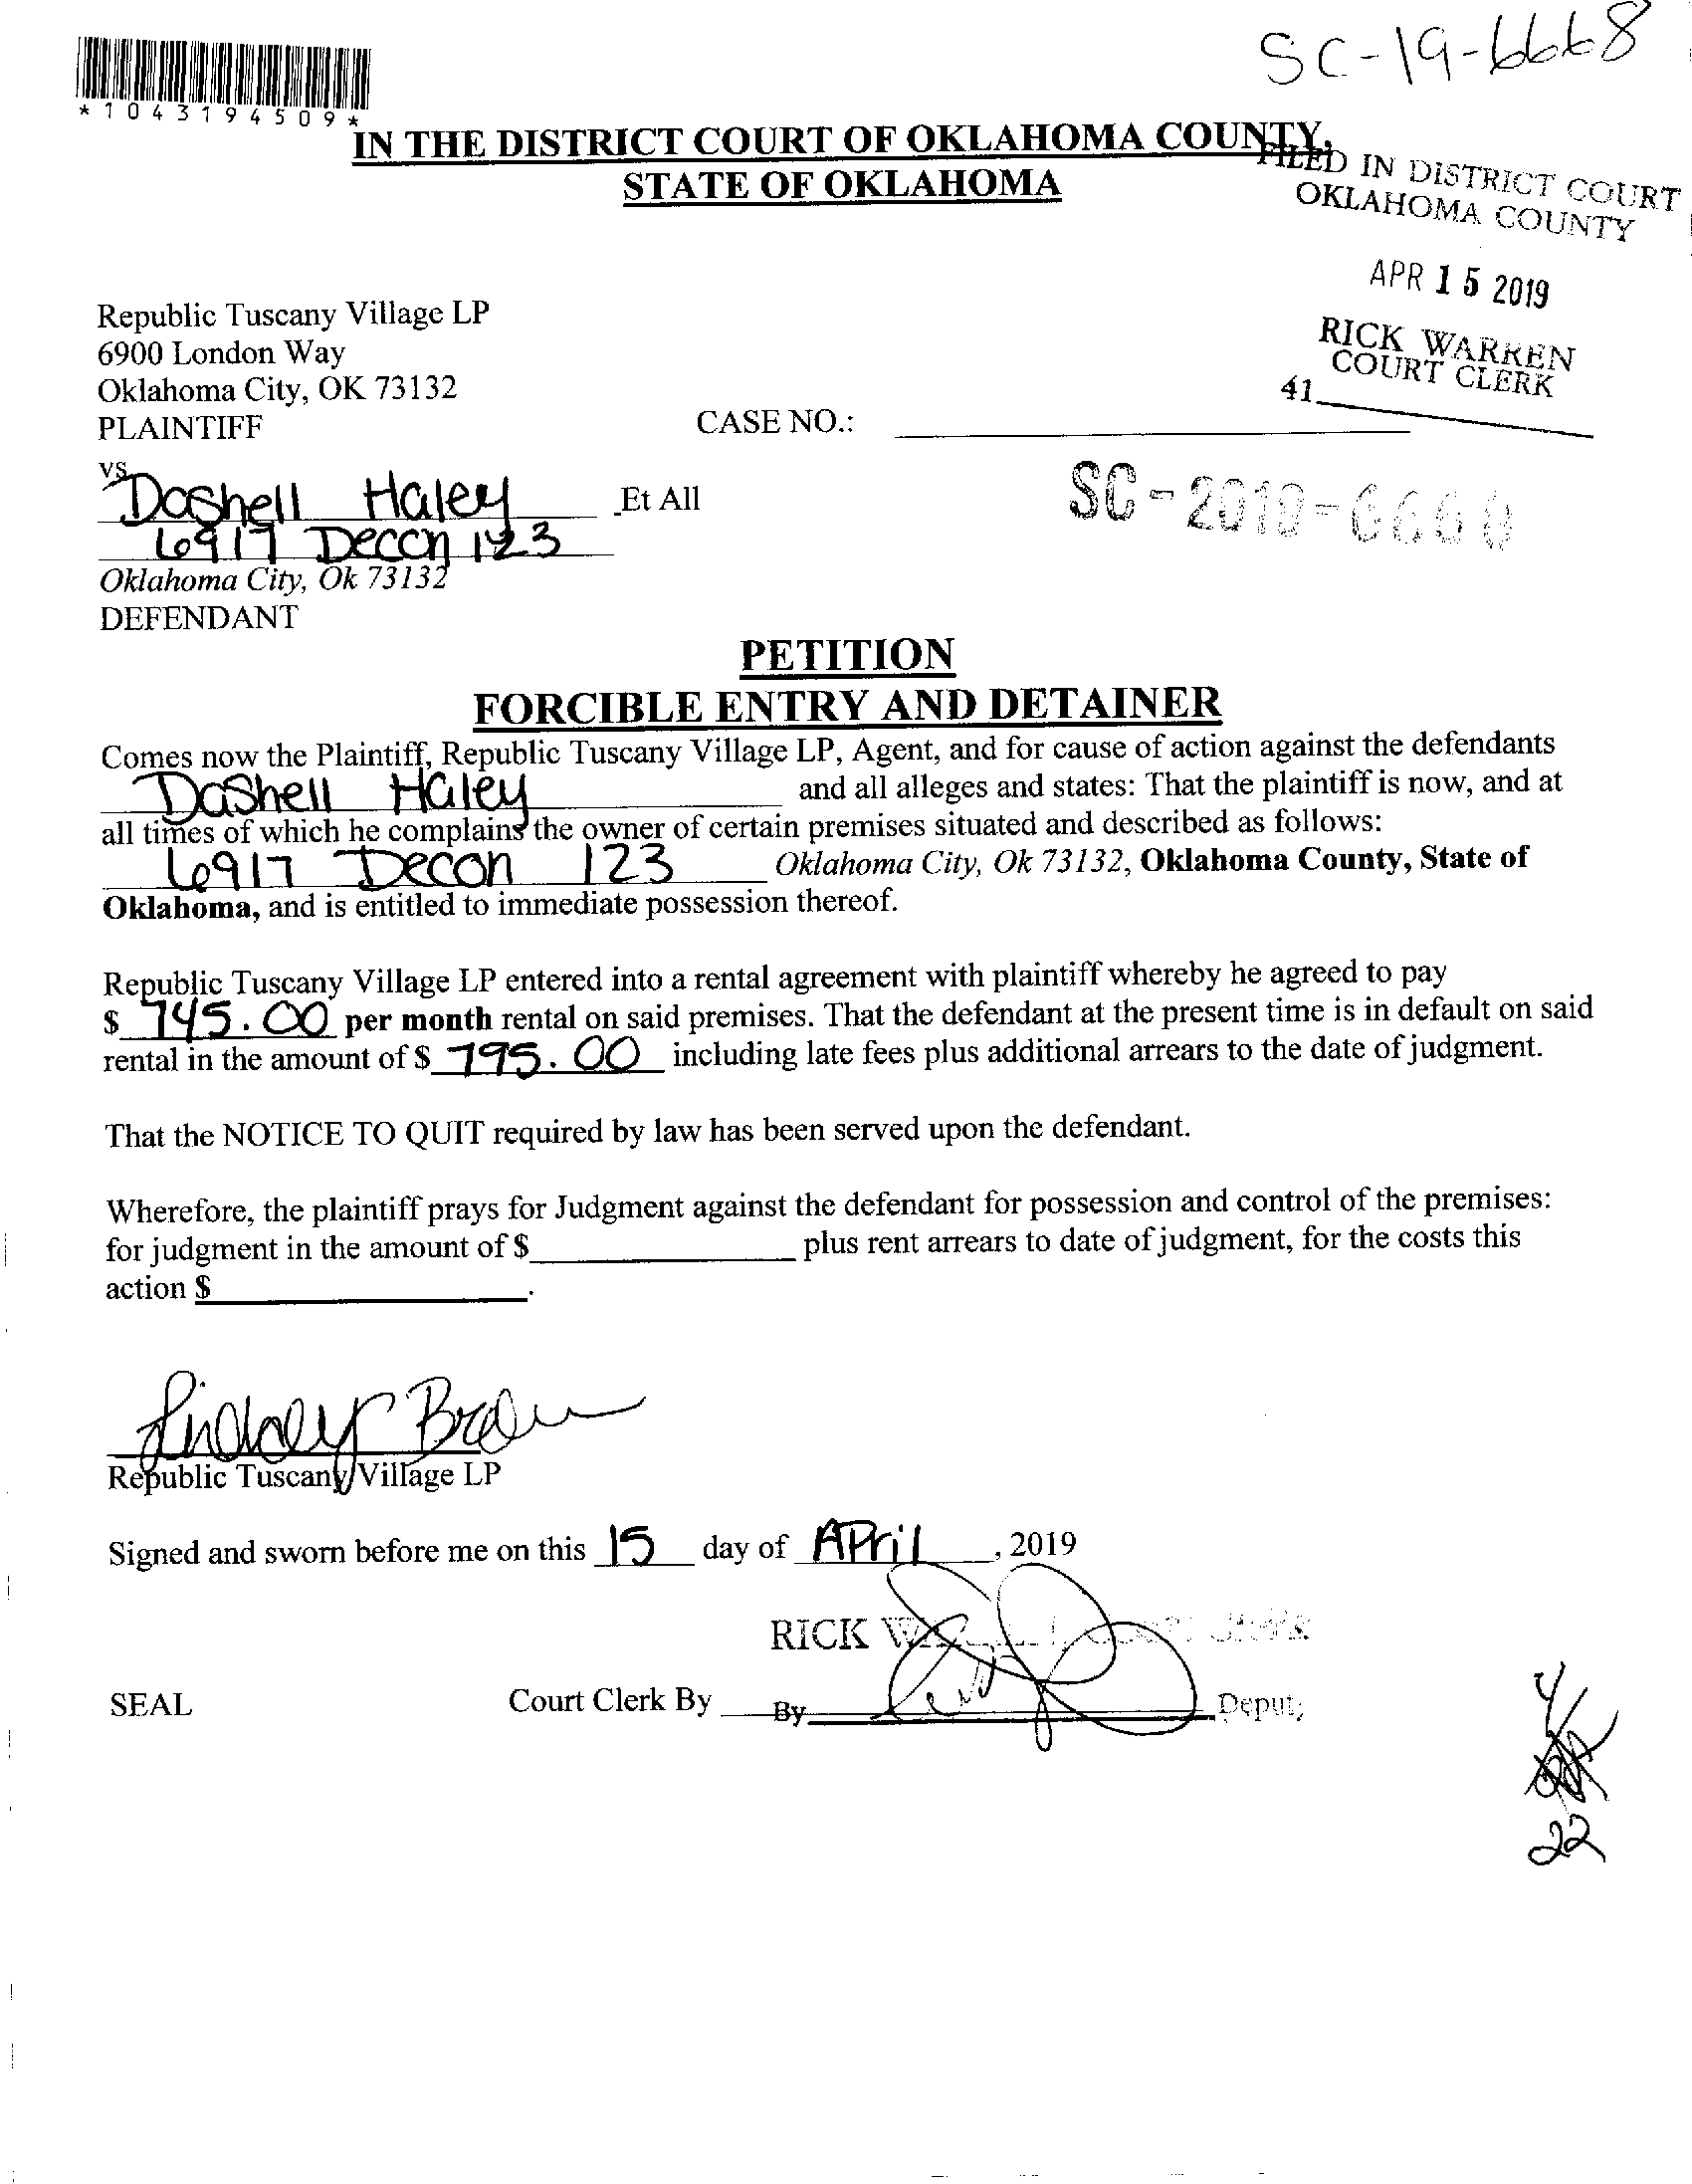 SC-19-6668
*1043194509*
IN THE DISTRICT COURT OF OKLAHOMA COUNTY,
STATE OF OKLAHOMA
FILED IN DISTRICT COURT
OKLAHOMA COUNTY
APR 15 2019
RICK WARREN
COURT CLERK
41
Republic Tuscany Village LP
6900 London Way
Oklahoma City, OK 73132
PLAINTIFF
CASE NO.:
vs
Dashell Haley Et All
SC-2019-6668
6917 Decon 123
Oklahoma City, Ok 73132
DEFENDANT
PETITION
FORCIBLE ENTRY AND DETAINER
Comes now the Plaintiff, Republic Tuscany Village LP, Agent, and for cause of action against the defendants
Dashell Haley and all alleges and states: That the plaintiff is now, and at
all times of which he complains the owner of certain premises situated and described as follows:
6917 Decon 123 Oklahoma City, Ok 73132, Oklahoma County, State of
Oklahoma, and is entitled to immediate possession thereof.
Republic Tuscany Village LP entered into a rental agreement with plaintiff whereby he agreed to pay
$ 745.00 per month rental on said premises. That the defendant at the present time is in default on said
rental in the amount of $ 795.00 including late fees plus additional arrears to the date of judgment.
That the NOTICE TO QUIT required by law has been served upon the defendant.
Wherefore, the plaintiff prays for Judgment against the defendant for possession and control of the premises:
for judgment in the amount of $ plus rent arrears to date of judgment, for the costs this
action $ .
Republic Tuscany Village LP
Signed and sworn before me on this 15 day of APril, 2019
RICK
SEAL
Court Clerk By By Deputy
4/
22